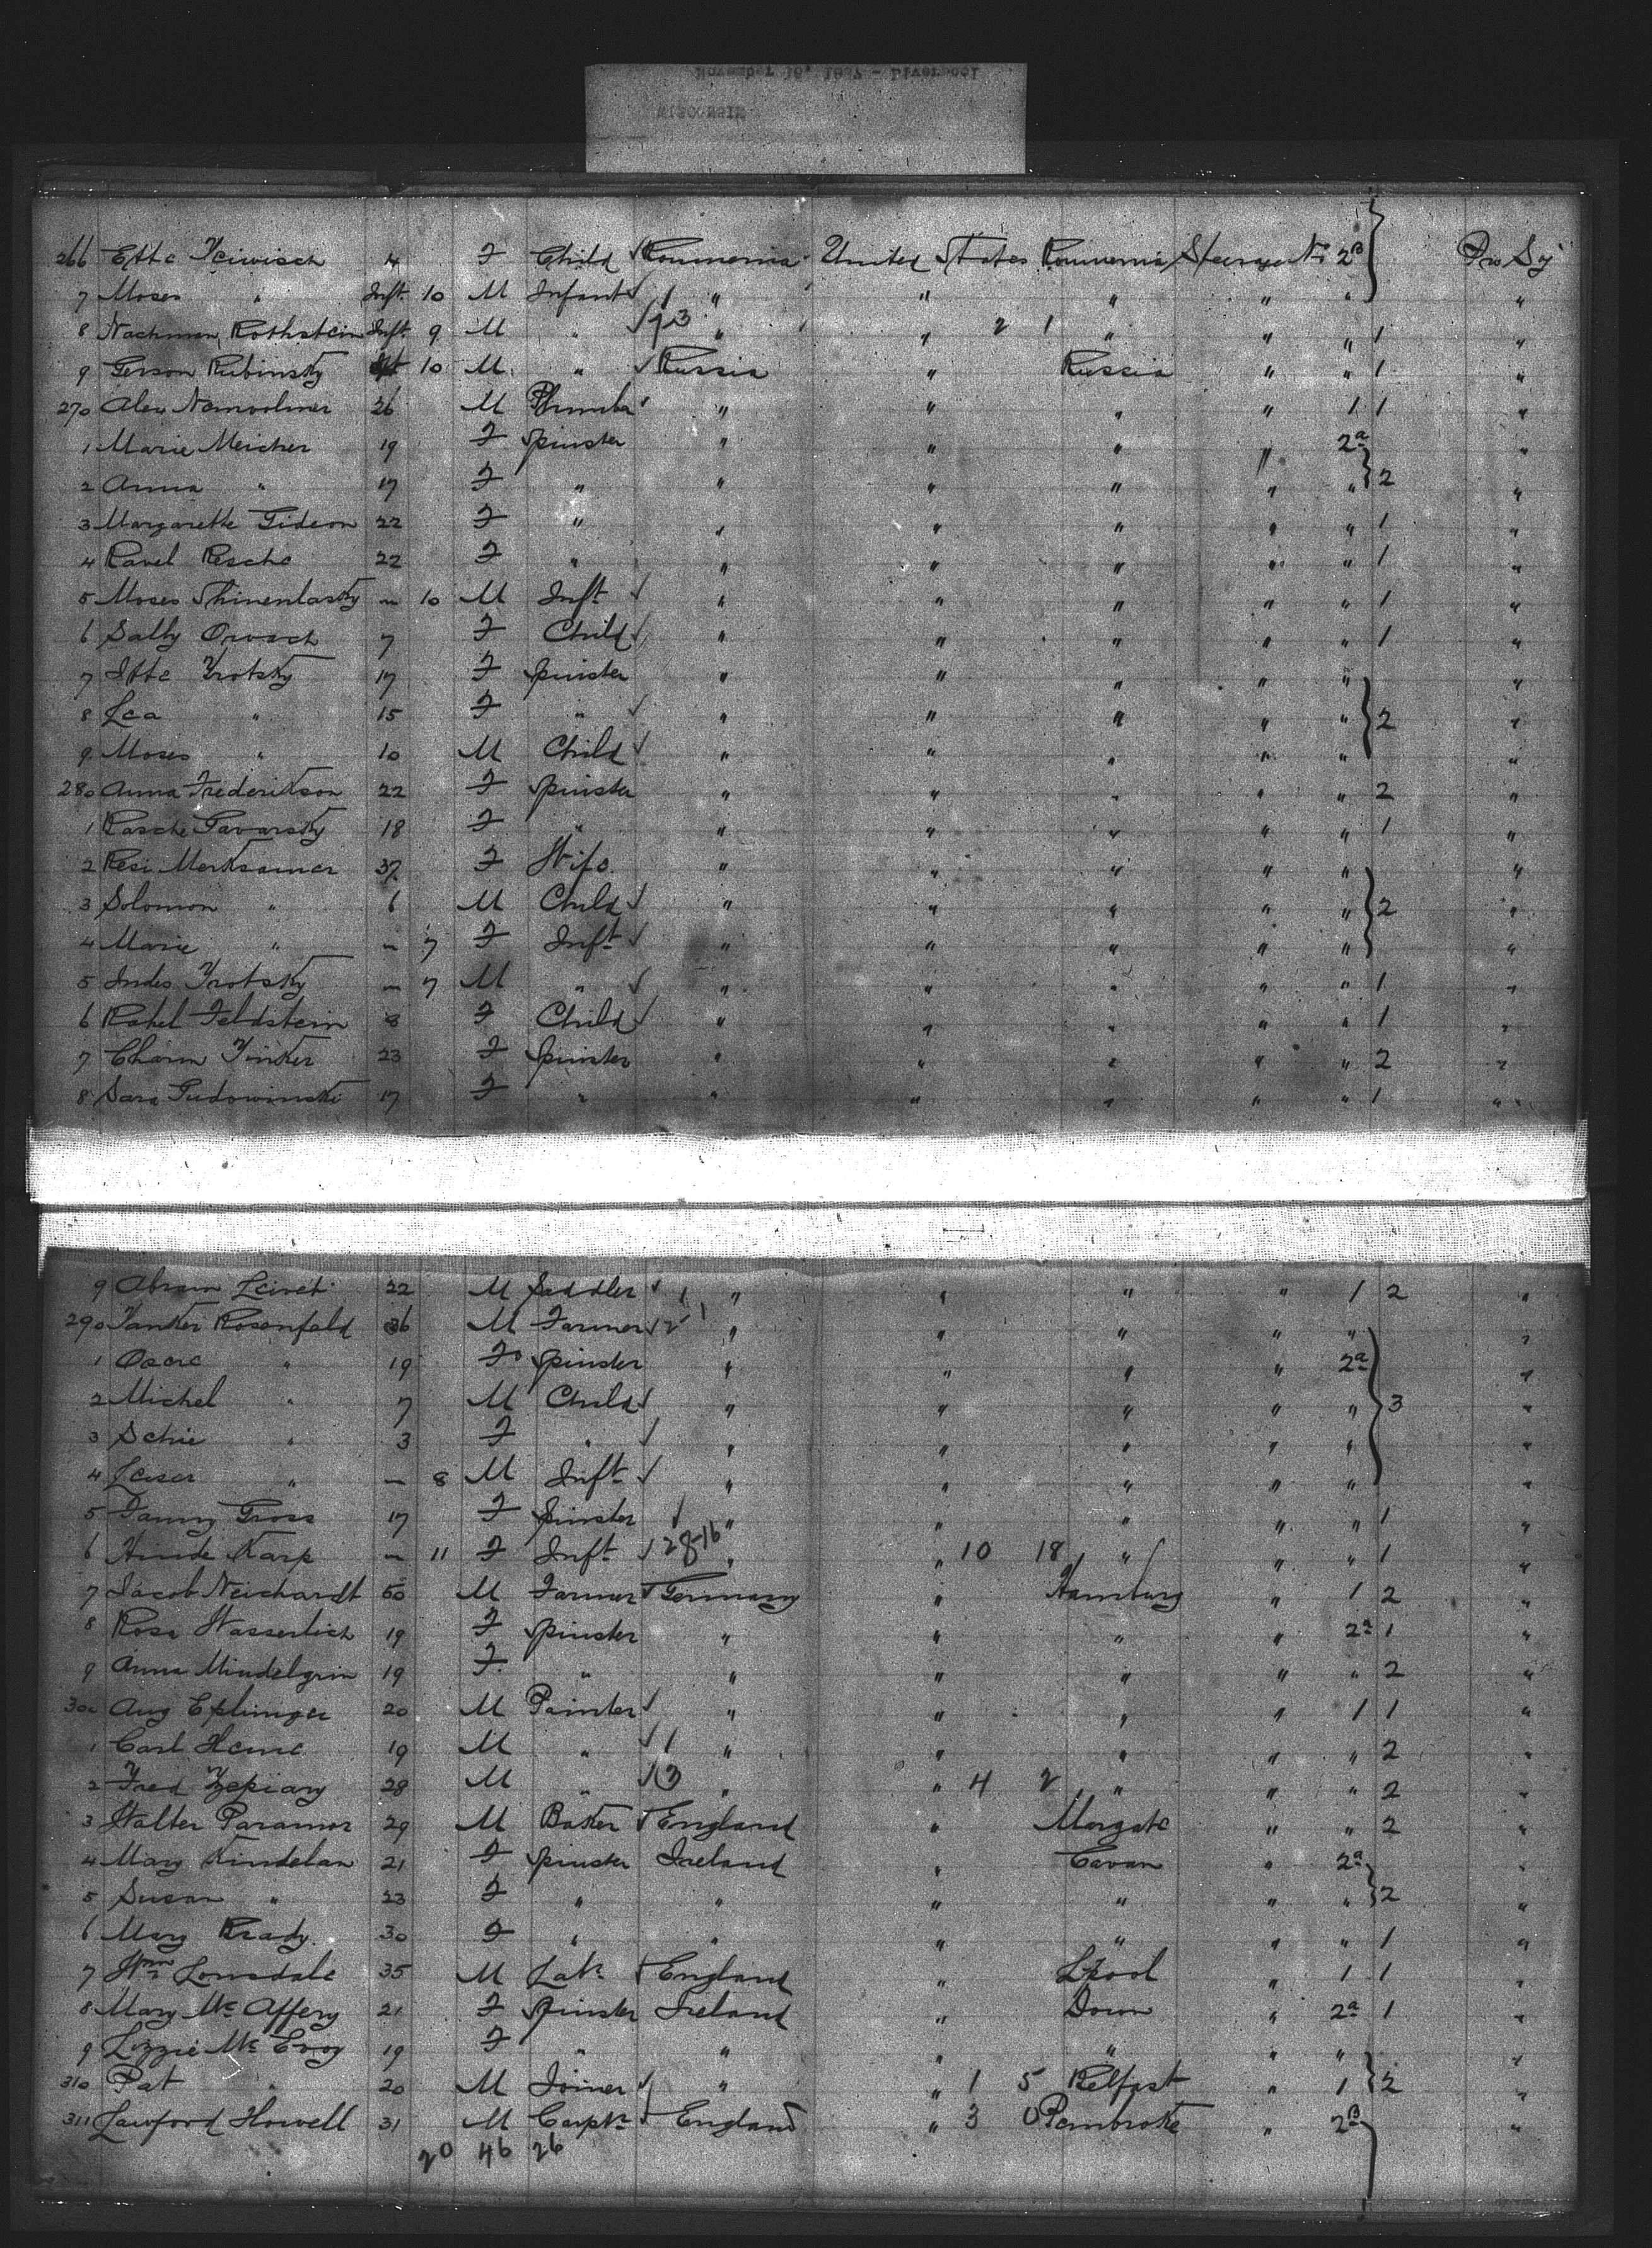 266 Ette Leiwisch 4 F Child √ Roumenia United States Roumenia Steerage No 2B Pro Soj
7 Moses " Inft. 10 M Infant √ 1 " " " " " "
8 Nachman Rothstein Inft. 9 M " √ 93 " " 2 1 " " " 1 "
9 Gerson Rubinsky 10 M " √ Russia " Russia " " 1 "
270 Alex 26 M " " " " 1 1 "
1 Marie Meicher 19 F Spinster " " " " 2a "
2 Anna " 17 F " " " " " " 2 "
3 Margarette Gideon 22 F " " " " " " 1 "
4 Ravel Resche 22 F " " " " " " 1 "
5 Moses ~ 10 M Inft √ " " " " " 1 "
6 Sally 7 F Child √ " " " " " 1 "
7 Itte Trotsky 17 F Spinster " " " " " "
8 Lea " 15 F " √ " " " " " 2 "
9 Moses " 10 M Child √ " " " " " "
280 Anna Frederikson 22 F Spinster " " " " " 2 "
1 Rasche 18 F " " " " " " 1 "
2 Resi Merksamer 37 F Wife " " " " " "
3 Solomon " 6 M Child √ " " " " " 2 "
4 Marie " ~ 7 F Inft √ " " " " " "
5 Judes Trotsky ~ 7 M " √ " " " " " 1 "
6 Rahel Feldstein 8 F Child √ " " " " " 1 "
7 23 F Spinster " " " " " 2 "
8 Sara 17 F " " " " " " 1 "
9 Abram 22 M Saddler √ 1 " " " " 1 2 "
290 Yanker Rosenfeld 36 M Farmer √ " " " " " "
1 " 19 F Spinster " " " " 2a "
2 Michel " 7 M Child √ " " " " " 3 "
3 Schie " 3 F " √ " " " " " "
4 Leiser " ~ 8 M Inft √ " " " " " "
5 Fanny Gross 17 F Spinster √ " " " " " 1 "
6 Hinde Karp ~ 11 F Inft √ 28-16 " " 10 18 " " " 1 "
7 Jacob Neichardt 50 M Farmer √ Germany " Hamburg " 1 2 "
8 Rosa Wasserlich 19 F Spinster " " " " 2a 1 "
9 Anna Mindelgrin 19 F " " " " " " 2 "
300 Aug Eplinger 20 M Painter √ " " " " 1 1 "
1 Carl Heine 19 M " √ 1 " " " " " 2 "
2 Fred 28 M " √ 3 " " 4 2 " " " 2 "
3 Walter Paramor 29 M Baker √ England " Margate " " 2 "
4 Mary Kindelan 21 F Spinster Ireland " Cavan " 2a "
5 Susan " 23 F " " " " " " 2 "
6 Mary Brady 30 F " " " " " " 1 "
7 Wm Lonsdale 35 M Labr √ England " L'pool " 1 1 "
8 Mary McAffery 21 F Spinster Ireland " Down " 2a 1 "
9 Lizzie McEvoy 19 F " " " " " " "
310 Pat " 20 M Joiner √ " " 1 5 Belfast " 1 2 "
311 Lawford Howell 31 M Carptr √ England " 3 0 Pembroke " 2B "
20 46 26